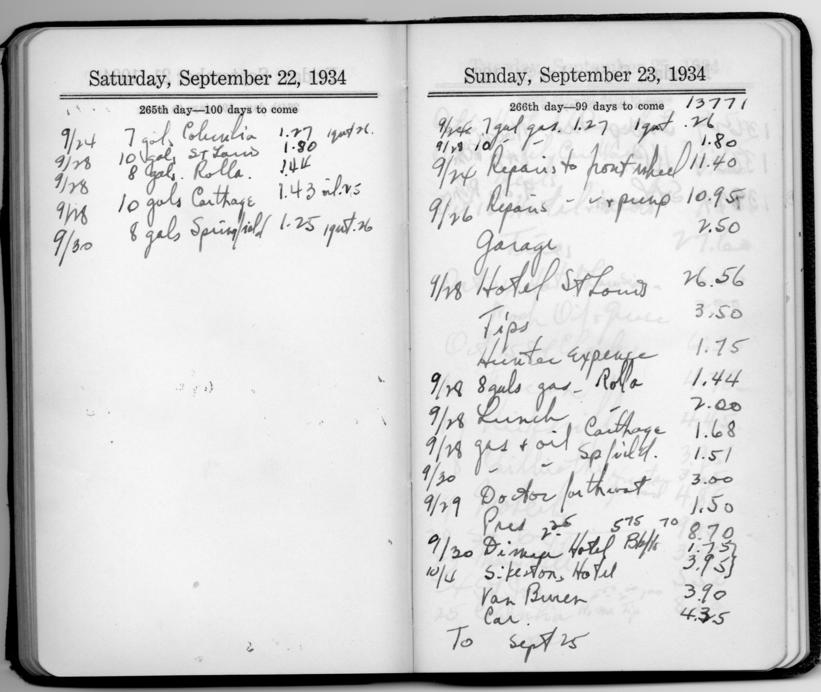 Saturday, September 22, 1934
265th day—100 days to come
9/24 7 gals Columbia 1.27 1 qart .26
9/28 10 gals St Louis 1.80
9/28 8 gals. Rolla. 1.44
9/28 10 gals Carthage 1.43 oil .25
9/30 8 gals Springfield 1.25 1 qart .26
Sunday, September 23, 1934
266th day—99 days to come 13771
9/24 7 gal gas. 1.27 1 qart .26
9/28 10 " " 1.80
9/24 Repairs to front wheel 11.40
9/26 Repairs - " + pump 10.95
Garage 2.50
9/28 Hotel St Louis 26.56
Tips 3.50
Hunter Expense 1.75
9/28 8 gals gas - Rolla 1.44
9/28 Lunch 2.00
9/28 gas + oil Carthage 1.68
9/30 " " Spfield. 1.51
9/29 Doctor for throat 3.00
Pres 1.50
9/30 Hotel 2.25 5.75 70 8.70
1.75
10/4 Sikeston, Hotel 3.95
Van Buren 3.90
Car.
To Sept 25